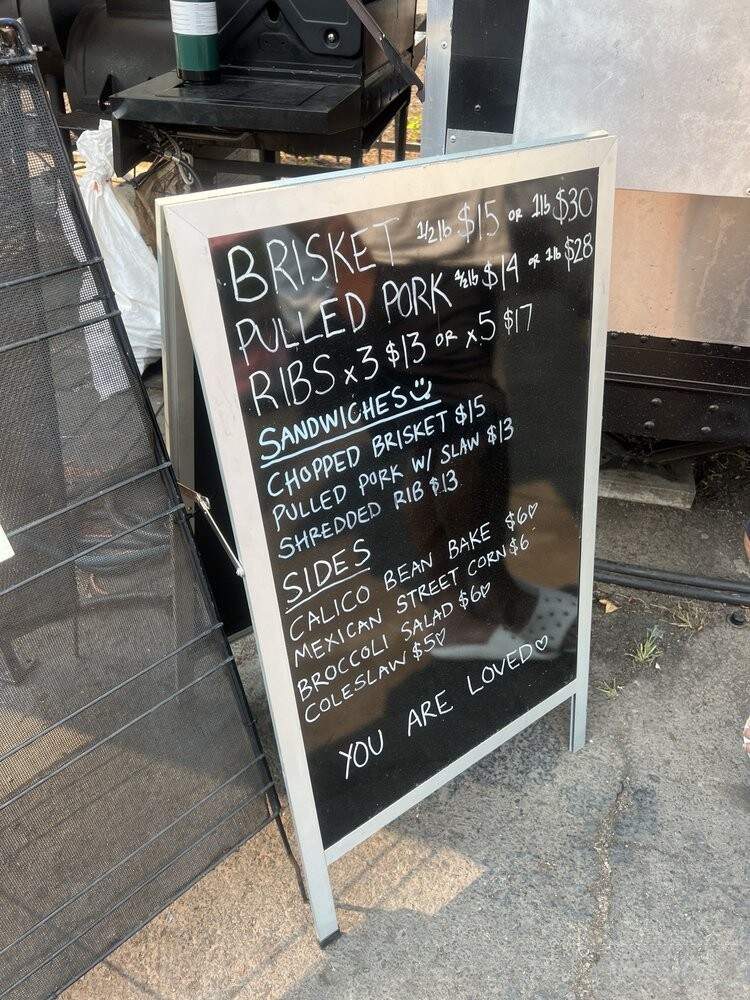 BRISKET 1/2lb $15 OR 1lb $30
PULLED PORK 1/2lb $14 OR 1lb $28
RIBS x3 $13 OR x5 $17
SANDWICHES
CHOPPED BRISKET $15
PULLED PORK W/ SLAW $13
SHREDDED RIB $13
SIDES
CALICO BEAN BAKE $6♡
MEXICAN STREET CORN $6
BROCCOLI SALAD $6♡
COLESLAW $5♡
YOU ARE LOVED♡